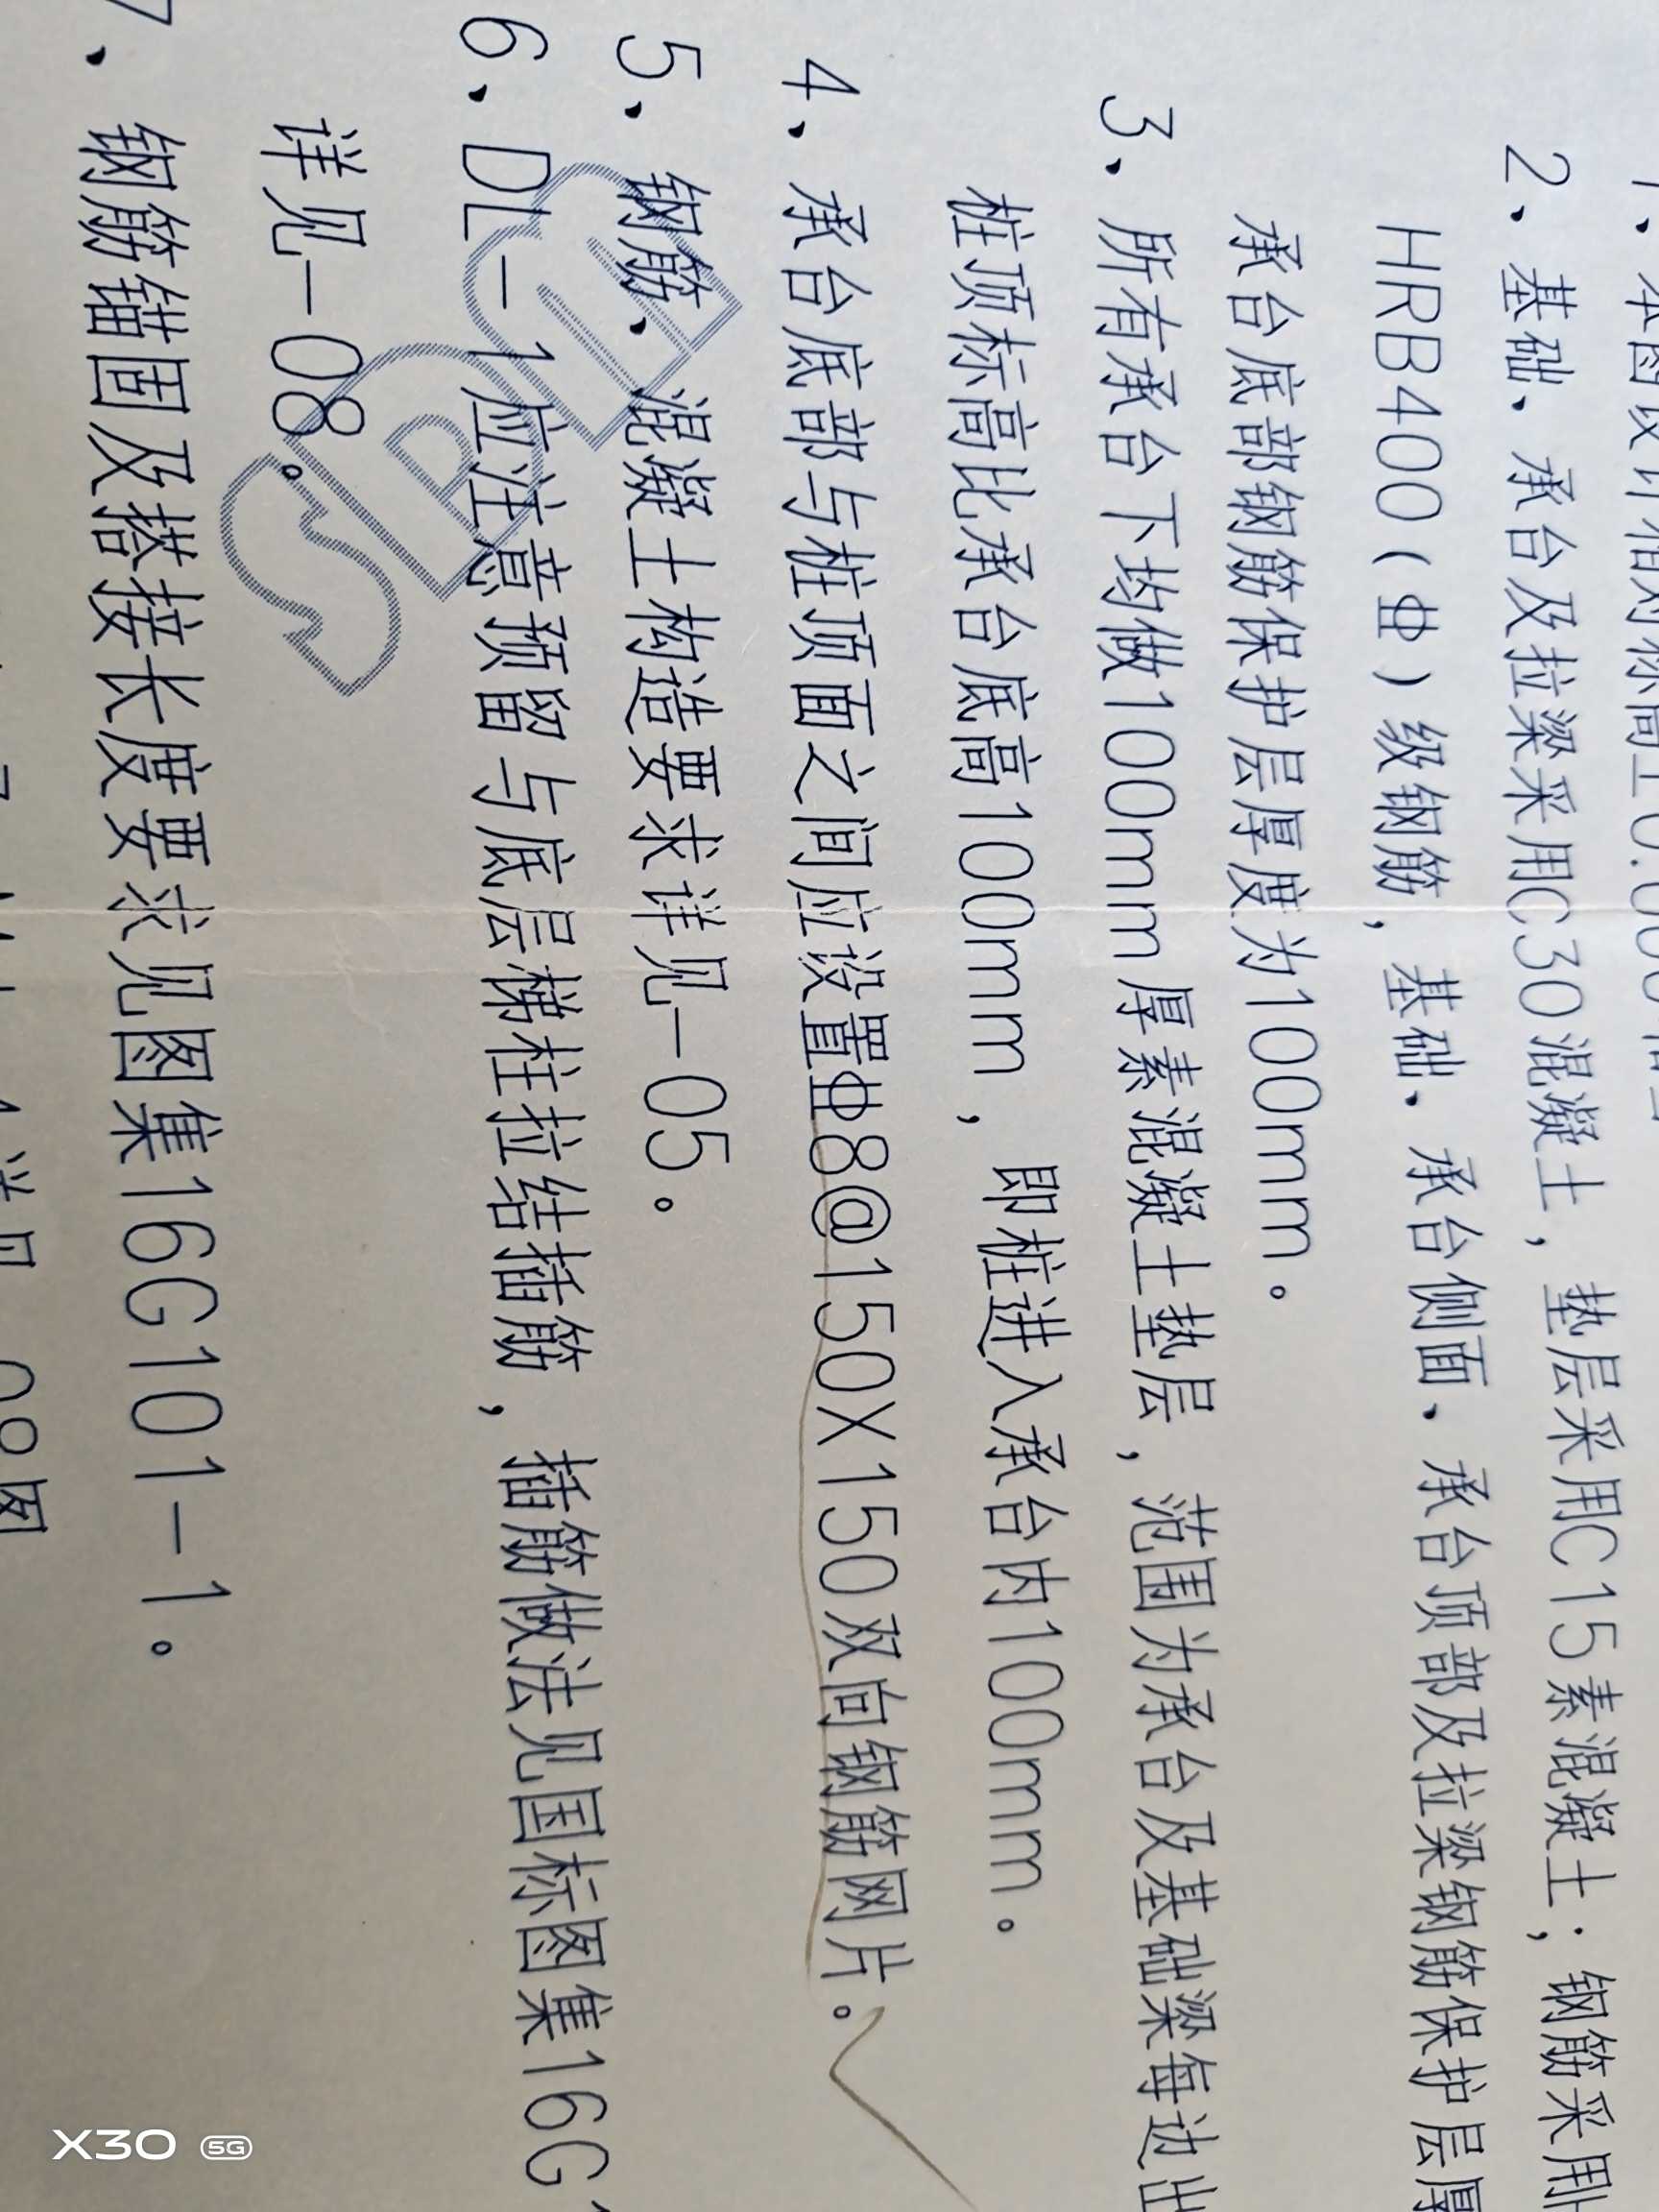 1、本图设计相对标高±0.000相当
2、基础、承台及拉梁采用C30混凝土，垫层采用C15素混凝土；钢筋采用
HRB400(Φ)级钢筋，基础、承台侧面、承台顶部及拉梁钢筋保护层厚
承台底部钢筋保护层厚度为100mm。
3、所有承台下均做100mm厚素混凝土垫层，范围为承台及基础梁每边出
桩顶标高比承台底高100mm，即桩进入承台内100mm。
4、承台底部与桩顶面之间应设置Φ8@150X150双向钢筋网片。
5、钢筋、混凝土构造要求详见-05。
6、DL-1应注意预留与底层梯柱拉结插筋，插筋做法见国标图集16G1
详见-08。
7、钢筋锚固及搭接长度要求见图集16G101-1。
SBDL
X30 5G